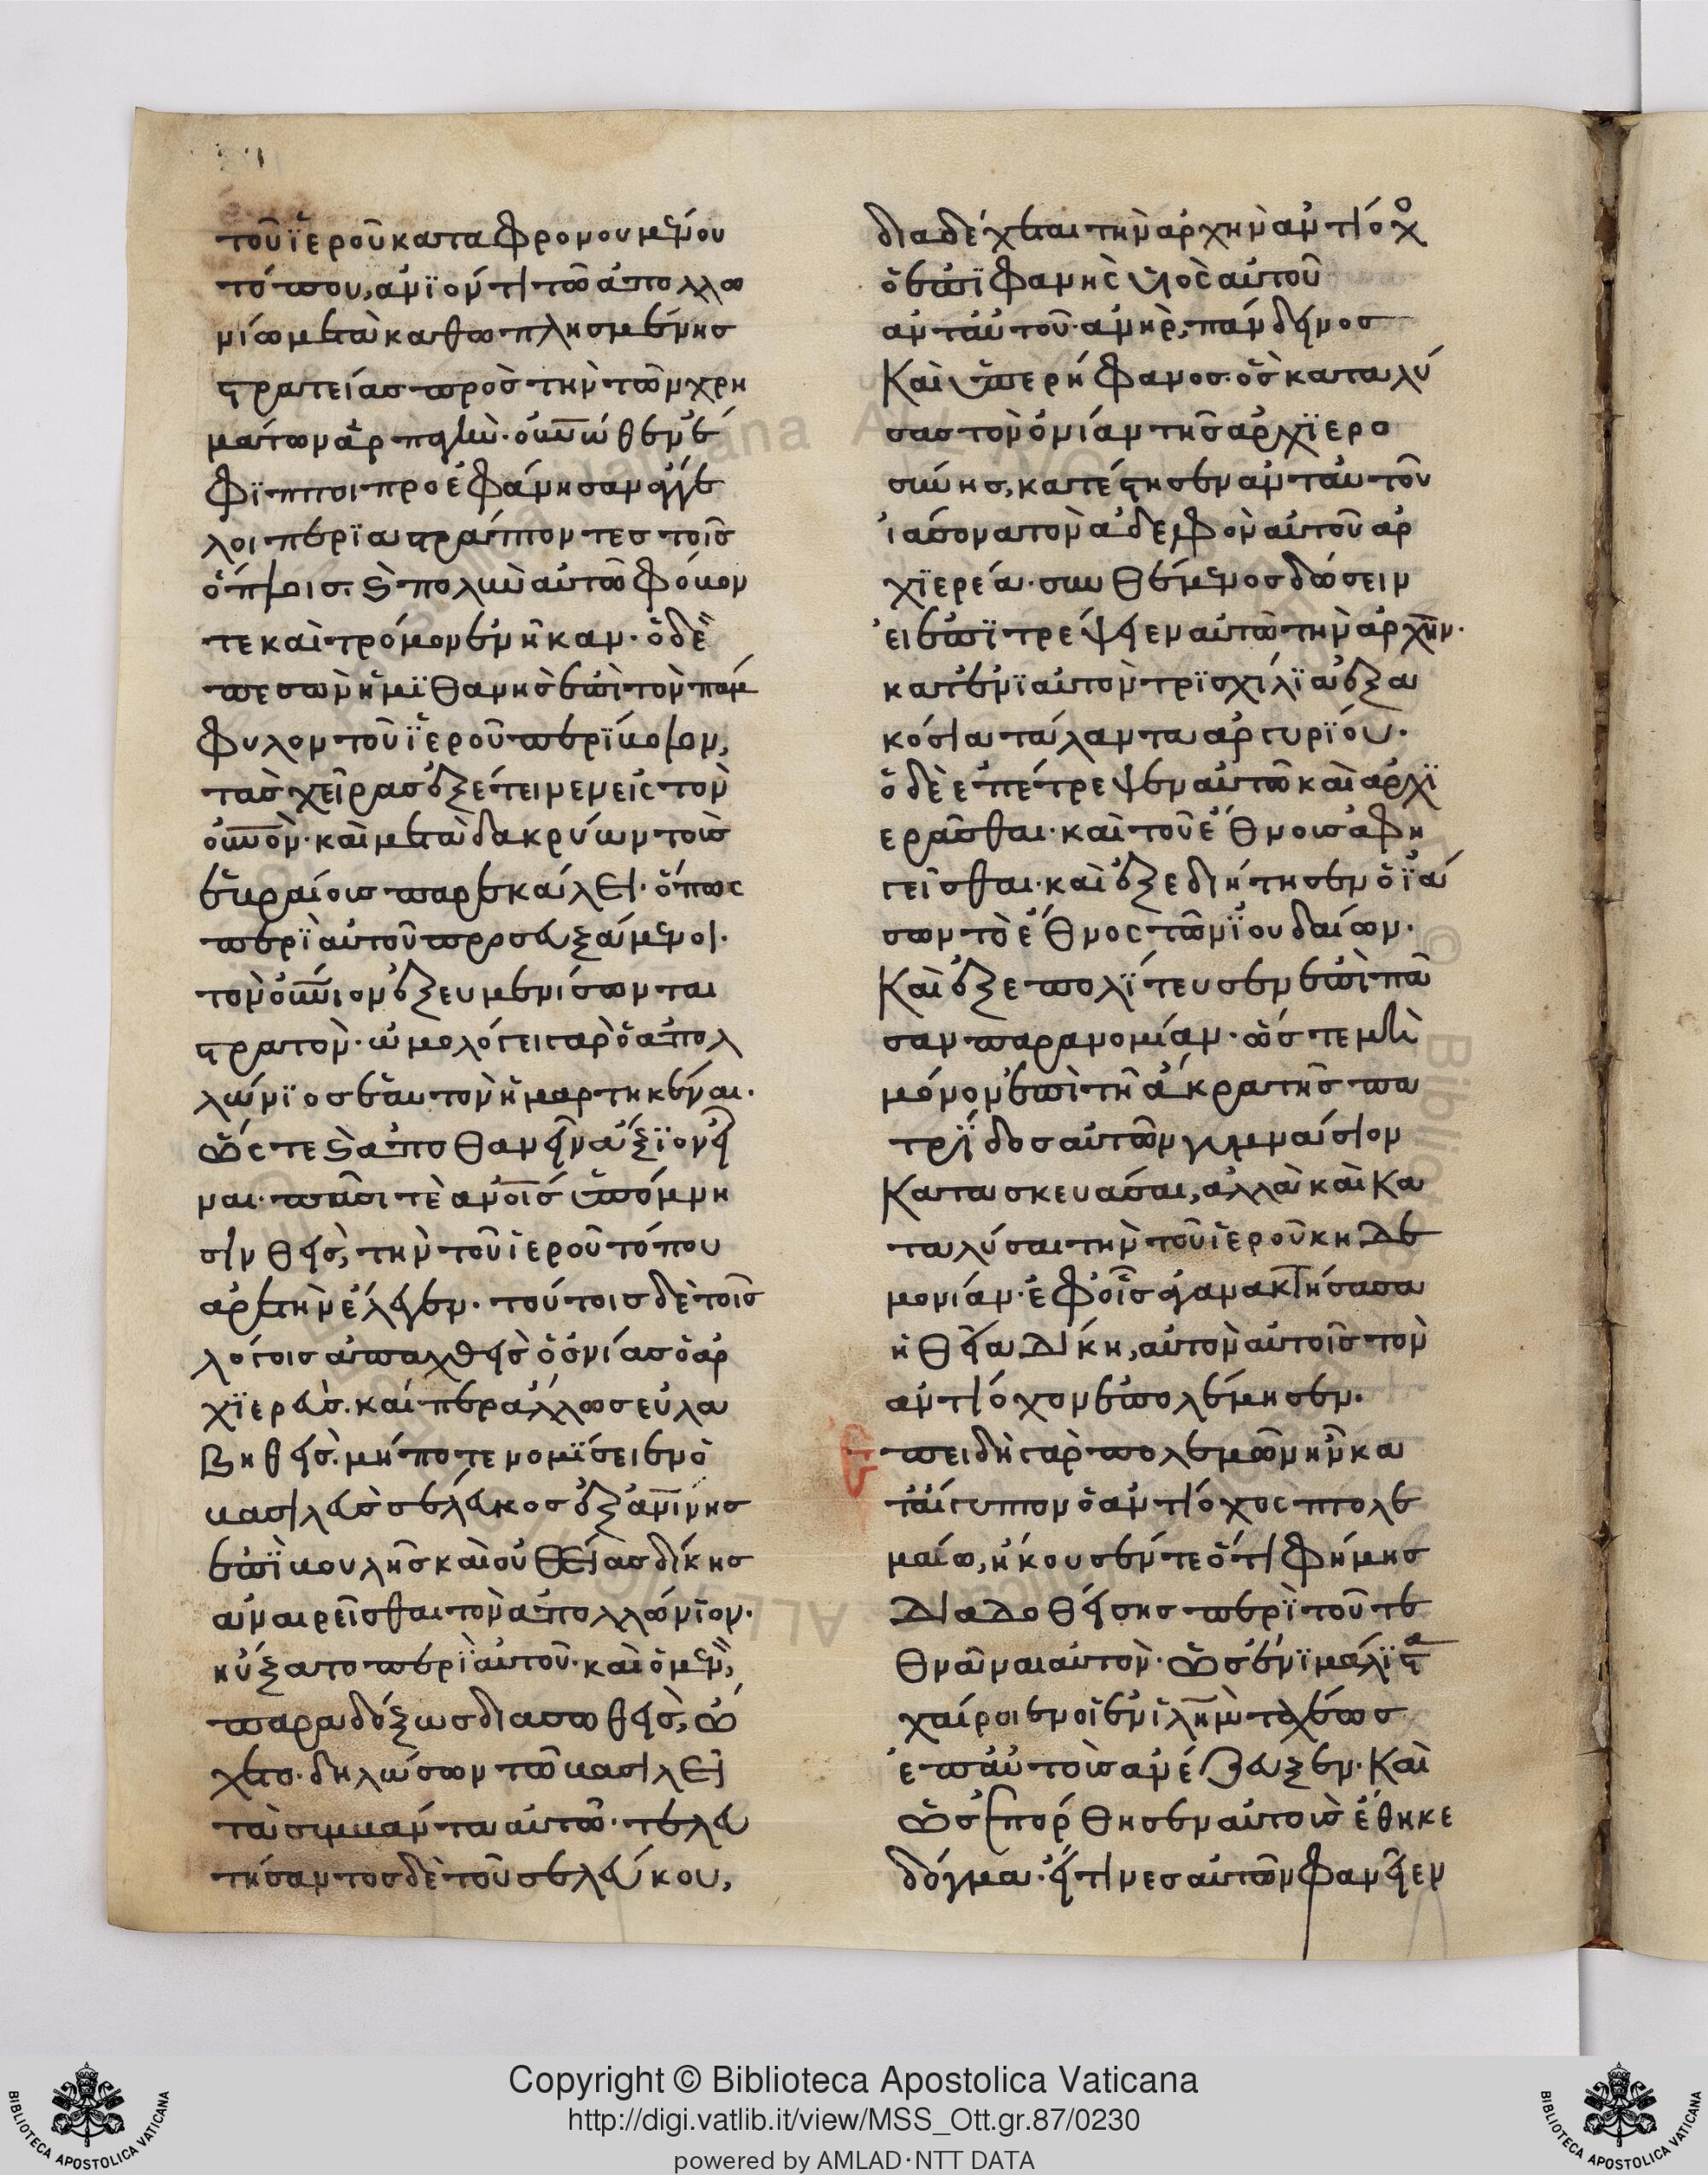 τοῦ ἱεροῦ καταφρονουμένου
τόπου, ἀνϊόντι τῶ ἀπολλω
νίω μετὰ καθωπλησμένης
στρατείας πρὸς τὴν τῶν χρη
μάτων ἁρπαγὴν· οὐνῶθεν ἔ
φϊπποι προεφάνησαν ἄγγε
λοι περϊαστράπτοντες τοῖς
ὅπλοις. καὶ πολὺν αὐτῶ φόβον
τε καὶ τρόμον ἐνῆκαν· ὁ δὲ
πεσὼν ἡμϊθανὴς ἐπὶ τὸν πάμ
φυλον τοῦ ἱεροῦ περϊβολον,
τὰς χεῖρας ἐξέτεινεν εἰς τὸν
οὐνον· καὶ μετὰ δακρύων τοὺς
ἑβραίους παρεκάλει· ὅπως
περϊ αὐτοῦ προσευξάμενοι.
τὸν οὐνιον ἐξευμενίσωνται
στρατὸν· ὡμολόγει γὰρ ὁ ἀπολ
λώνϊος ἑαυτὸν ἡμαρτηκέναι.
ὥστε καὶ ἀποθανεῖν ἄξϊον εἶ
ναι· πᾶσι τὲ ἀνοις ὑπόμνη
σιν θεὶς, τὴν τοῦ ἱεροῦ τόπου
ἀρετὴν ἔλεγεν· τούτοις δὲ τοῖς
λόγοις ἀπαχθεὶς ὁ ὀνίας ὁ ἀρ
χϊερεὺς. καί περ ἄλλως εὐλα
βηθεὶς. μήποτε νομϊσειεν ὁ
βασιλεὺς σέλευκος ἐξ ἀνινης
ἐπϊβουλῆς καὶ οὐ θείας δίκης
ἀναιρεῖσθαι τὸν ἀπολλώνϊον.
ηὔξατο περϊ αὐτοῦ· καὶ ὁ μὲν,
παραδόξως διασωθεὶς, ὤ
χετο. δηλώσων τῶ βασιλεῖ
τὰ συμβάντα αὐτῶ· τελευ
τήσαντος δὲ τοῦ σελεύκου,
διαδέχεται τὴν ἀρχὴν ἀντίοχο
ὁ ἐπϊφανὴς υἱὸς αὐτοῦ
ἀντ' αὐτοῦ· ἀνὴρ, πάνδεινος
Καὶ ὑπερήφανος. ὃς καταλύ
σας τὸν ὀνίαν τῆς ἀρχϊερο
σύνης, κατέστησεν ἀντ' αὐτοῦ
ἰάσονα τὸν ἀδελφὸν αὐτοῦ ἀρ
χϊερέα· συνθέμενος δώσειν
εἰ ἐπϊτρέψειεν αὐτῶ τὴν ἀρχὴν.
κατ' ἐνϊαυτὸν τρϊσχίλϊα ἑξα
κόσια τάλαντα ἀργυρϊου.
ὁ δὲ ἐπέτρεψεν αὐτῶ καὶ ἀρχϊ
ερᾶσθαι· καὶ τοῦ ἔθνους ἀφη
γεῖσθαι· καὶ ἐξεδιήτησεν ὁ ϊά
σων τὸ ἔθνος τῶν ϊουδαίων.
Καὶ ἐξεπολϊτευσεν ἐπὶ πᾶ
σαν παρανομίαν· ὥστε μὴ
μόνον ἐπὶ τῆ ἄκρα τῆς πα
τρϊδος αὐτῶν γυμνάσιον
Κατασκευάσαι, ἀλλὰ καὶ Κα
ταλύσαι τὴν τοῦ ἱεροῦ κηδε
μονίαν· ἐφ' οἷς ἀγανακτήσασα
ἡ θεία δίκη, αὐτὸν αὐτοῖς τὸν
ἀντίοχον ἐπολέμησεν.
Ἐπειδὴ γὰρ πολεμῶν ἦν κα
τ' αἴγυπτον ὁ ἀντίοχος πτολε
μαίω, ἤκουσέν τε ὅτι φήμης
διαδοθείσης περϊ τοῦ τε
θνάναι αὐτὸν· ὡς ἔνϊ μάλιστα
χαίροιεν οἱ ἐν ἱλημ τάχεως
ἐπ' αὐτοὺς ἀνέζευξεν. Καὶ
ὡς ἐπόρθησεν αὐτοὺς ἔθηκε
δόγμα· εἴ τινες αὐτῶν φανεῖεν
Copyright © Biblioteca Apostolica Vaticana
http://digi.vatlib.it/view/MSS_Ott.gr.87/0230
powered by AMLAD·NTT DATA
BIBLIOTECA APOSTOLICA VATICANA
BIBLIOTECA APOSTOLICA VATICANA